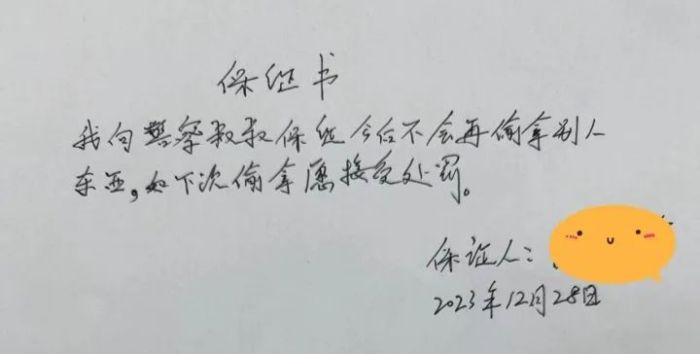 保证书
我向警察叔叔保证今后不会再偷拿别人
东西,如下次偷拿愿接受处罚。
保证人:
2023年12月28日